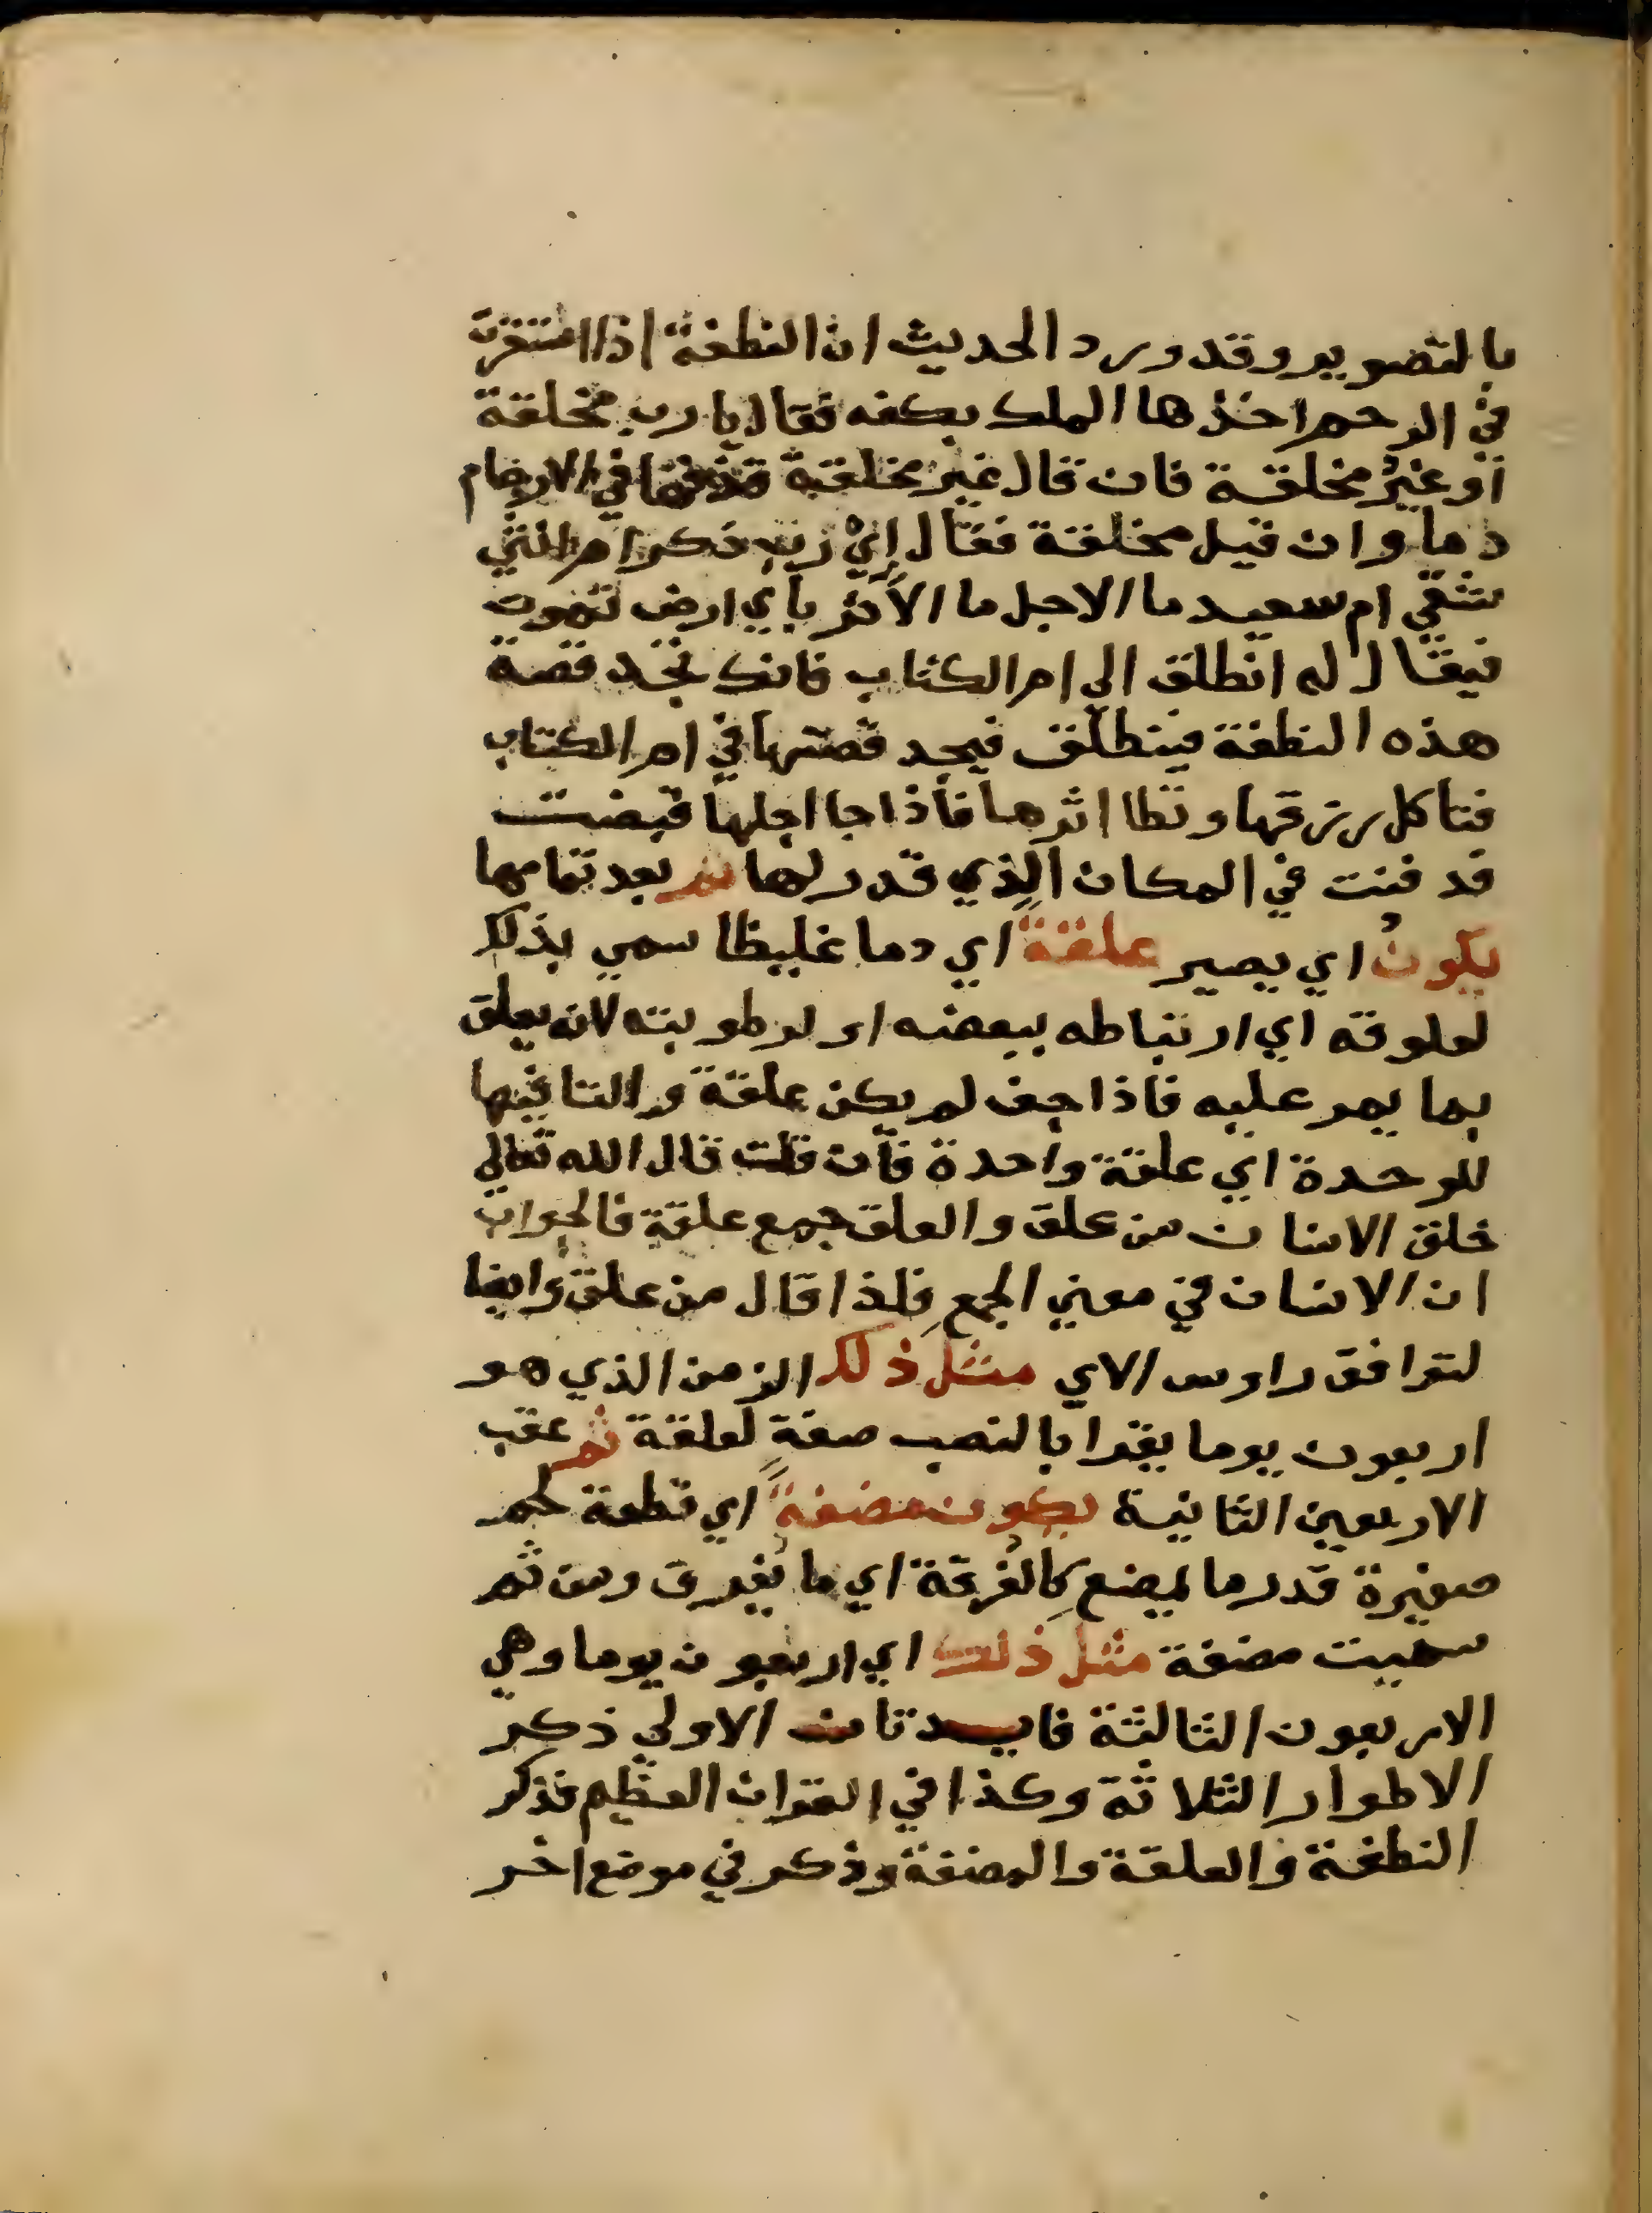 بالتصوير وقد ورد الحديث ان النطفة اذا استقرت
في الرحم اخذها الملك بكفه فقال يا رب مخلقة
او غير مخلقة فان قال غير مخلقة قذفها في الارحام
دما وان قيل مخلقة فقال اي رب ذكر ام انثى
شقي ام سعيد ما الاجل ما الاثر باي ارض تموت
فيقال له انطلق الي ام الكتاب فانك تجد قصة
هذه النطفة فينطلق فيجد قصتها في ام الكتاب
فتاكل رزقها وتطا اثرها فاذا جا اجلها قبضت
فدفنت في المكان الذي قدر لها ثم بعد تمامها
يكون اي يصير علقة اي دما غليظا سمي بذلك
لعلوقه اي ارتباطه ببعضه او لرطوبته لانه يعلق
بما يمر عليه فاذا جف لم يكن علقة والتا فيها
للوحدة اي علقة واحدة فان قلت قال الله تعالي
خلق الانسان من علق والعلق جمع علقة فالجواب
ان الانسان في معني الجمع فلذا قال من علق وايضا
لتوافق راوس الاي مثل ذلك الزمن الذي هو
اربعون يوما يقرا بالنصب صفة لعلقة ثم عقب
الاربعين الثانية يكون مضغة اي قطعة لحم
صغيرة قدر ما يمضغ كالغرفة اي ما يغرف ومن ثم
سميت مضغة مثل ذلك اي اربعون يوما وهي
الاربعون الثالثة فايدتان الاولي ذكر
الاطوار الثلاثة وكذا في القران العظيم فذكر
النطفة والعلقة والمضغة وذكر في موضع اخر